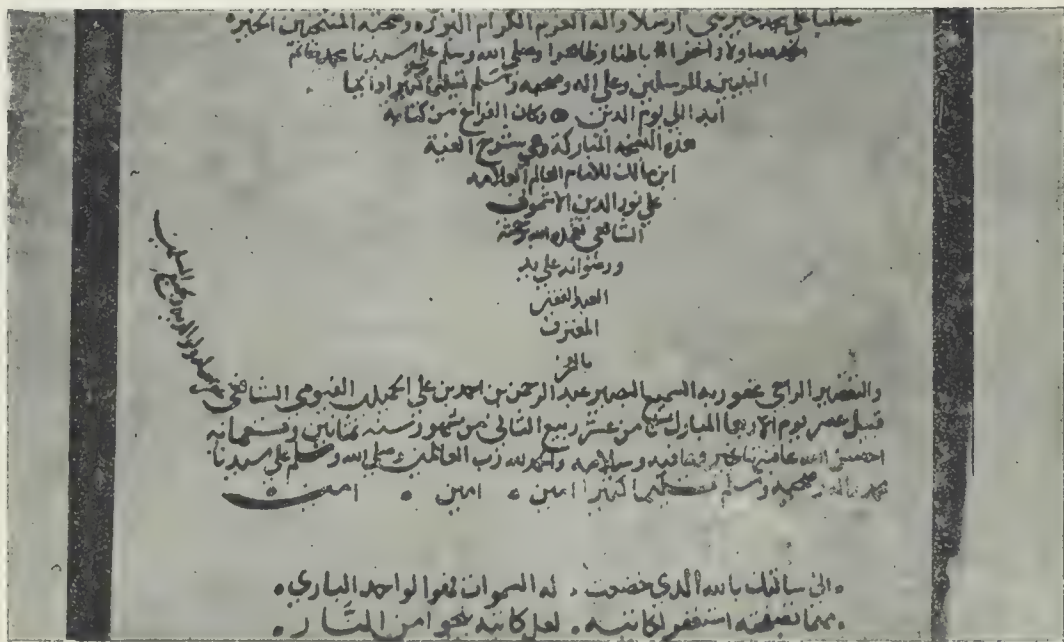 مصليا على محمد خير نبي ارسلا وآله الغر الكرام البررة وصحبه المنتخبين الخيره
والحمد لله اولا واخرا باطنا وظاهرا وصلى الله وسلم على سيدنا محمد خاتم
النبيين والمرسلين وعلى اله وصحبه وسلم تسليما كثيرا دايما
ابدا الى يوم الدين وكان الفراغ من كتابة
هذه النسخه المباركة وهي شرح الفية
ابن مالك للامام العالم العلامه
علي نور الدين الاشموني
الشافعي تغمده الله برحمته
ورضوانه على يد
العبد الفقير
المعترف
بالعجز
والتقصير الراجي عفو ربه السميع البصير عبد الرحمن بن احمد بن علي الفيومي الشافعي
غفر الله له ولوالديه ولجميع المسلمين
قبيل عصر يوم الاربعا المبارك من عشر ربيع الثاني من شهور سنة ثمانين وتسعمائه
احسن الله عاقبتها بخير وعافيه وسلامه والحمد لله رب العالمين وصلى الله وسلم على سيدنا
محمد واله وصحبه وسلم تسليما كثيرا امين امين امين
اني سالتك بالله الذي خضعت له السموات فهو الواحد الباري
مهما تصفحته استغفر لكاتبه لعل كاتبه ينجو من النار